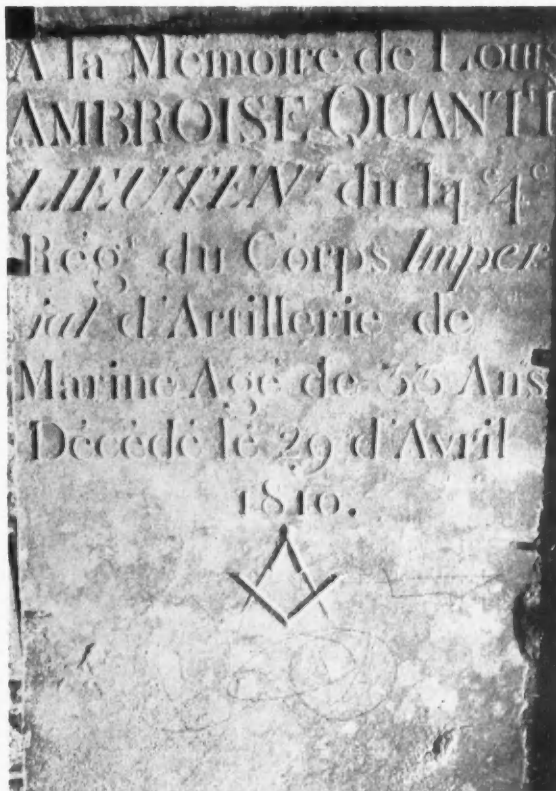 A la Mémoire de Louis
AMBROISE QUANTI
LIEUTENᵗ du 4ᵉ
Régᵗ du Corps Imper
ial d'Artillerie de
Marine Agé de 33 Ans
Décédé le 29 d'Avril
1810.